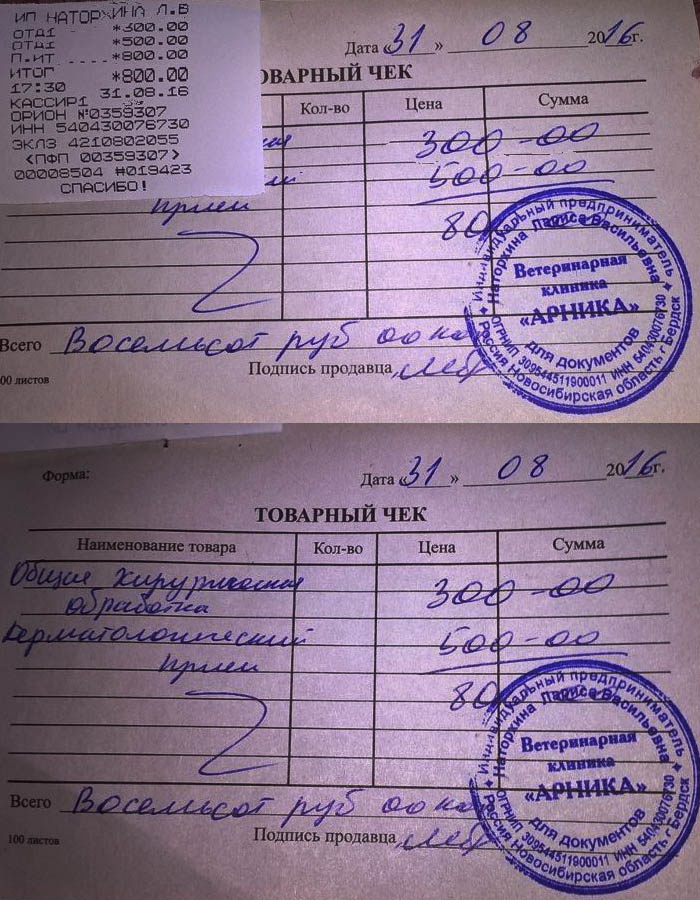 ИП НАТОРХИНА Л.В
ОТД1 *300.00
ОТД1 *500.00
П.ИТ *800.00
ИТОГ *800.00
17:30 31.08.16
КАССИР1
ОРИОН №0359307
ИНН 540430076730
ЭКЛЗ 4210802055
<ПФП 00359307>
00008504 #019423
СПАСИБО!
Дата «31» 08 2016г.
ОВАРНЫЙ ЧЕК
Кол-во Цена Сумма
300-00
500-00
прием
80
Всего Восемьсот руб 00 ко
Подпись продавца
00 листов
Индивидуальный предприниматель
Наторхина Лариса Васильевна
Ветеринарная
клиника
«АРНИКА»
для документов
ОГРНИП 309544511900011 ИНН 540430076730
Россия Новосибирская область г Бердск
Форма:
Дата «31» 08 2016г.
ТОВАРНЫЙ ЧЕК
Наименование товара Кол-во Цена Сумма
Общие хирургическая
обработка 300-00
Дерматологический 500-00
прием
80
Всего Восемьсот руб 00 ко
Подпись продавца
100 листов
Индивидуальный предприниматель
Наторхина Лариса Васильевна
Ветеринарная
клиника
«АРНИКА»
для документов
ОГРНИП 309544511900011 ИНН 540430076730
Россия Новосибирская область г Бердск